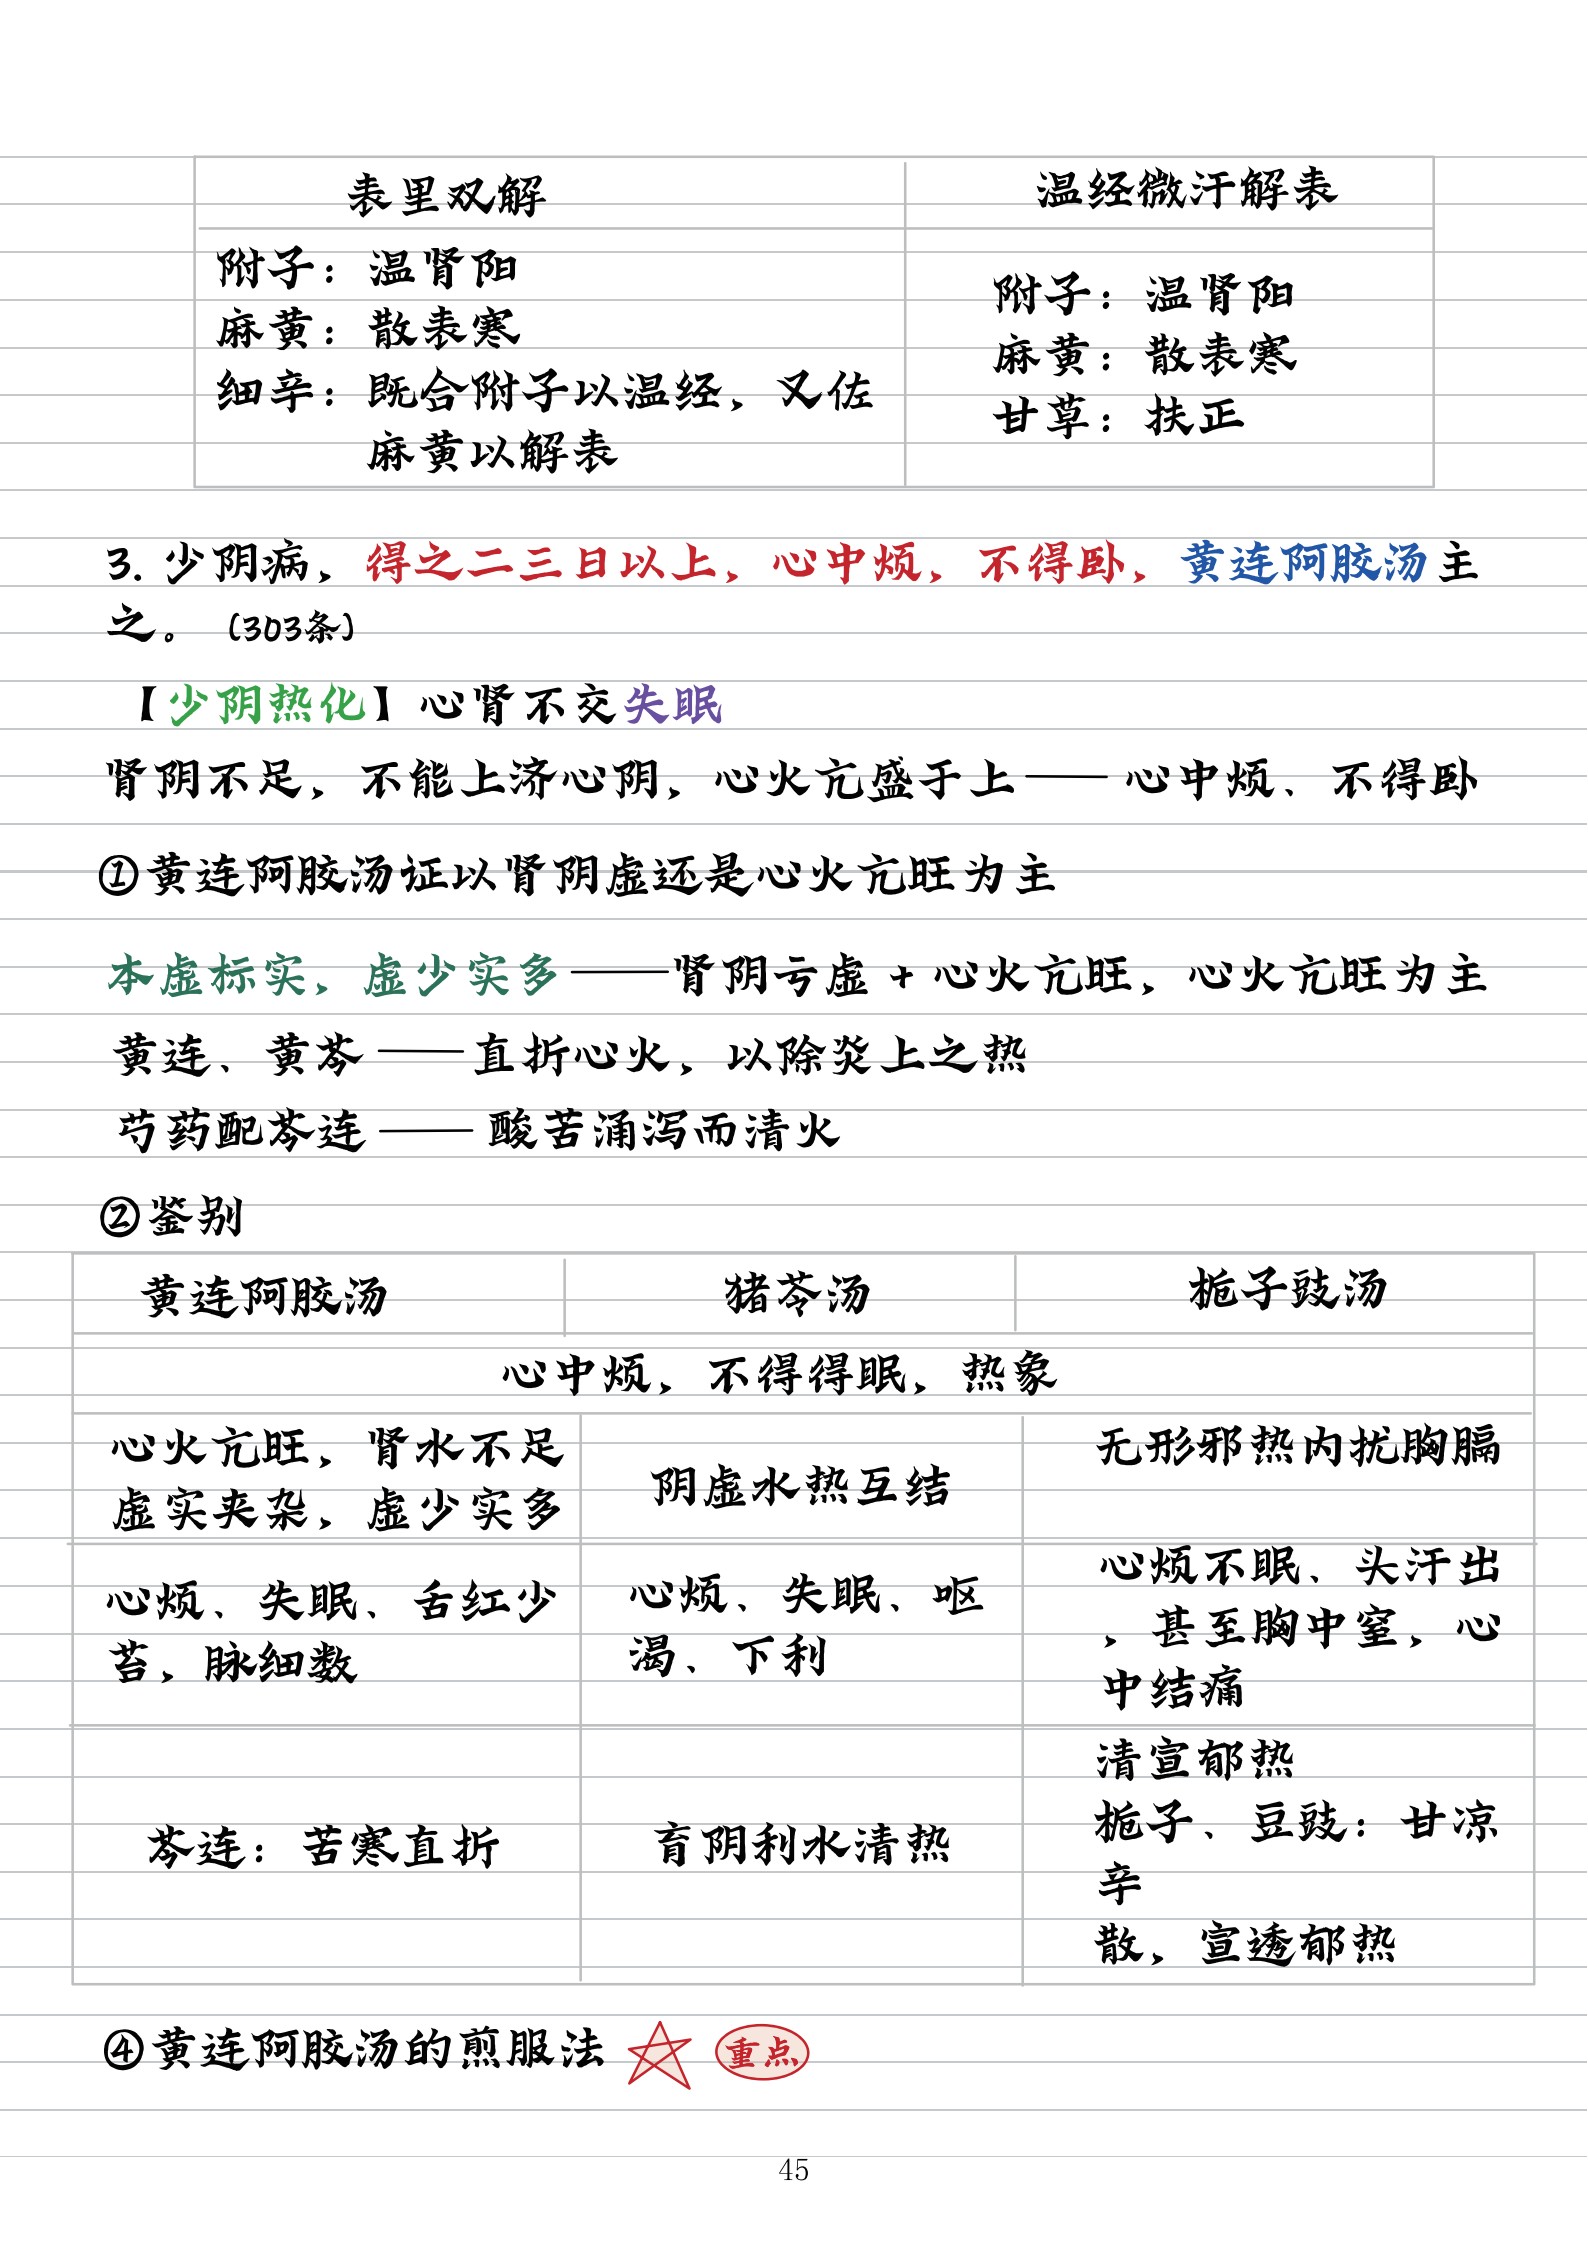 表里双解
温经微汗解表
附子：温肾阳
麻黄：散表寒
细辛：既合附子以温经，又佐
麻黄以解表
附子：温肾阳
麻黄：散表寒
甘草：扶正
3. 少阴病，得之二三日以上，心中烦，不得卧，黄连阿胶汤主
之。（303条）
【少阴热化】心肾不交失眠
肾阴不足，不能上济心阴，心火亢盛于上——心中烦、不得卧
①黄连阿胶汤证以肾阴虚还是心火亢旺为主
本虚标实，虚少实多——肾阴亏虚 + 心火亢旺，心火亢旺为主
黄连、黄芩——直折心火，以除炎上之热
芍药配芩连——酸苦涌泻而清火
②鉴别
黄连阿胶汤
猪苓汤
栀子豉汤
心中烦，不得得眠，热象
心火亢旺，肾水不足
虚实夹杂，虚少实多
阴虚水热互结
无形邪热内扰胸膈
心烦、失眠、舌红少
苔，脉细数
心烦、失眠、呕
渴、下利
心烦不眠、头汗出
，甚至胸中窒，心
中结痛
芩连：苦寒直折
育阴利水清热
清宣郁热
栀子、豆豉：甘凉
辛
散，宣透郁热
④黄连阿胶汤的煎服法 重点
45